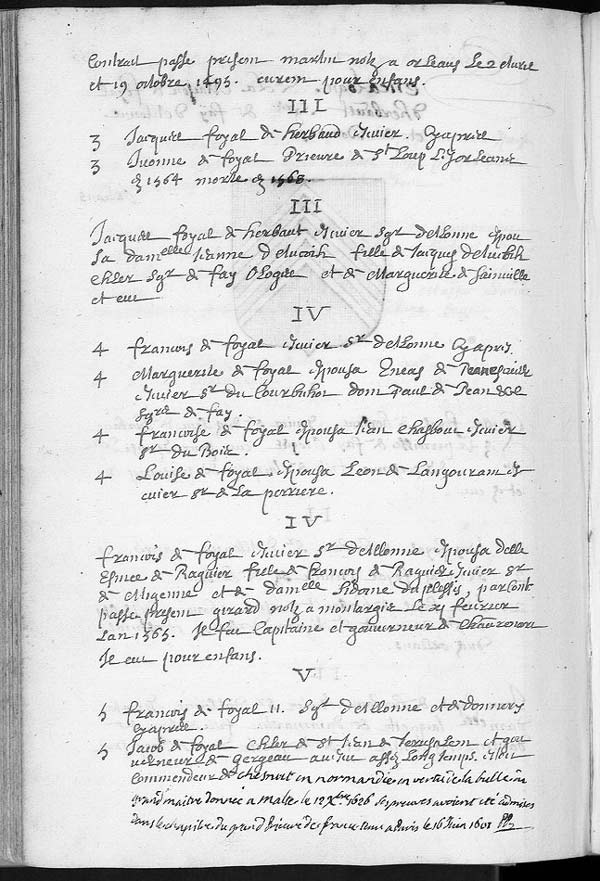 Contrait passé presens martin notz a orleans Le 2 
et 19 octobre 1495. eurent pour enfans.
III
3 Jacques foyal de herbaud escuier Cy apres
3 Yvonne de foyal Prieure de St Loup Lez orleans
en 1564 morte en 1568.
III
Jacques foyal de herbaut escuier sgr dallonne espousa
damelle Jeanne fille de Jacques
chler sgr de fay et de Marguerite de Sainville
et eut
IV
4 francois de foyal escuier sr dallonne Cy apres.
4 Marguerite de foyal espousa Eneas de
escuier sr du Courbuhot dont Paul de
sgr de fay.
4 francoise de foyal espousa Jean escuier
sr du Bois.
4 Louise de foyal espousa Leon de Langouram es
cuier sr de La perriere.
IV
francois de foyal escuier sr dallonne espousa delle
Esmee de Raguier fille de francois de Raguier escuier sr
de Migenne et de damelle Sidoine du plessis, par cont
passé presens girard notz a montargis Le xi feuvrier
Lan 1565. Il fut Capitaine et gouverneur de
Il eut pour enfans.
V
5 francois de foyal II. sgr dallonne et de donnery
Cy apres.
5 Jacob de foyal chler de St Jean de Jerusalem et gou
verneur de Gergeau assez Long temps. il
Commandeur de en normandie en vertu de la bulle du
grand maitre donnée a malte le 12 Xbre 1626 ses preuves avoient été admises
dans le chapitre du grand prieuré de france tenu a Paris le 16 Juin 1601